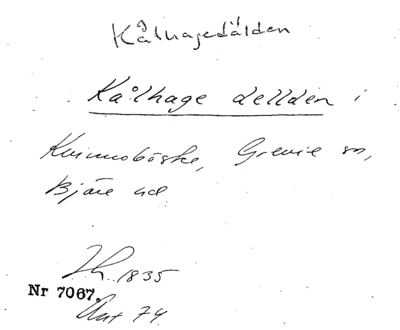 Kålhagedälden
Kålhage dellden i
Kvinnaböske, Grevie sn,
Bjäre hd
Lh 1835
Nr 7067.
Akt 74